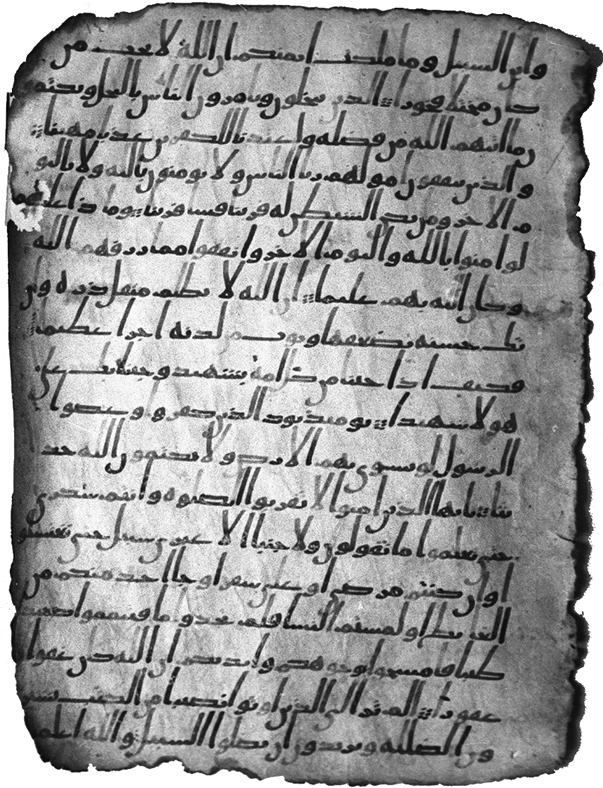 وابن السبيل وما ملكت ايمنكم ان الله لا يحب من
كان مختلا فخورا الذين يبخلون ويامرون الناس بالبخل ويكتمو
ن ما اتيهم الله من فضله واعتدنا للكفرين عذبا مهينا
والذين ينفقون امولهم ريا الناس ولا يومنون بالله ولا باليو
م الاخر ومن يكن الشيطن له قرينا فسا قرينا وما ذا عليهم
لو امنوا بالله واليوم الاخر وانفقوا مما رزقهم الله
وكان الله بهم عليما ان الله لا يظلم مثقل ذره وان
تك حسنه يضعفها ويوت من لدنه اجرا عظيما
فكيف اذا جينا من كل امه بشهيد وجينا بك على
هولا شهيدا يوميذ يود الذين كفروا وعصوا
الرسول لو تسوى بهم الارض ولا يكتمون الله حد
يثا يايها الذين امنوا لا تقربوا الصلوه وانتم سكرى
حتى تعلموا ما تقولون ولا جنبا الا عبري سبيل حتى تغتسلو
ا وان كنتم مرضى او على سفر او جا احد منكم من
الغيط او لمستم النسا فلم تجدوا ما فتيمموا صعيدا
طيبا فامسحوا بوجوهكم وايديكم ان الله كان عفوا
غفورا الم تر الى الذين اوتوا نصيبا من الكتب يشتر
ون الضلله ويريدون ان تضلوا السبيل والله اعلم